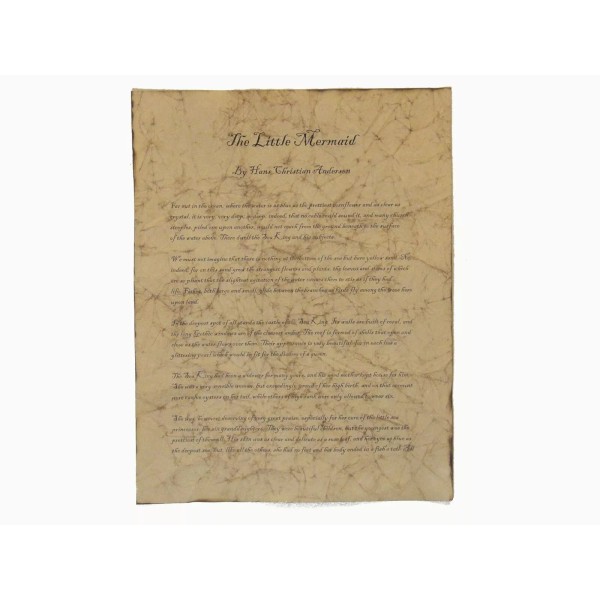 The Little Mermaid
By Hans Christian Anderson
Far out in the ocean, where the water is as blue as the prettiest cornflower and as clear as
crystal, it is very, very deep; so deep, indeed, that no cable could sound it, and many church
steeples, piled one upon another, would not reach from the ground beneath to the surface
of the water above. There dwell the Sea King and his subjects.
We must not imagine that there is nothing at the bottom of the sea but bare yellow sand. No
indeed, for on this sand grow the strangest flowers and plants, the leaves and stems of which
are so pliant that the slightest agitation of the water causes them to stir as if they had
life. Fishes, both large and small, glide between the branches as birds fly among the trees here
upon land.
In the deepest spot of all stands the castle of the Sea King. Its walls are built of coral, and
the long Gothic windows are of the clearest amber. The roof is formed of shells that open and
close as the water flows over them. Their appearance is very beautiful, for in each lies a
glittering pearl which would be fit for the diadem of a queen.
The Sea King had been a widower for many years, and his aged mother kept house for him.
She was a very sensible woman, but exceedingly proud of her high birth, and on that account
wore twelve oysters on her tail, while others of high rank were only allowed to wear six.
She was, however, deserving of very great praise, especially for her care of the little sea
princesses, her six granddaughters. They were beautiful children, but the youngest was the
prettiest of them all. Her skin was as clear and delicate as a rose leaf, and her eyes as blue as
the deepest sea; but, like all the others, she had no feet and her body ended in a fish's tail. All